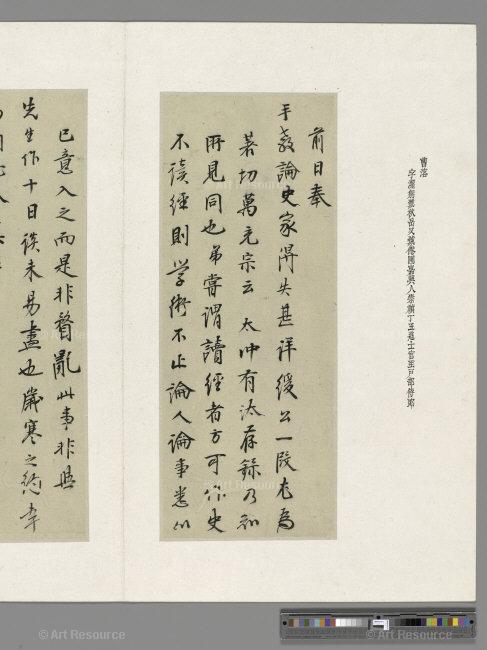 曹溶
字潔躬號秋岳又號倦圃嘉興人崇禎丁丑進士官至戶部侍郎
前日奉
手教論史家得失甚詳緩公一段尤為
著切萬充宗云太冲有汰存錄乃知
所見同也弟嘗謂讀經者方可作史
不讀經則學術不正論人論事悉以
己意入之而是非瞀亂此事非與
先生作十日談未易盡也歲寒之
© Art Resource
© Art Resource
© Art Resource